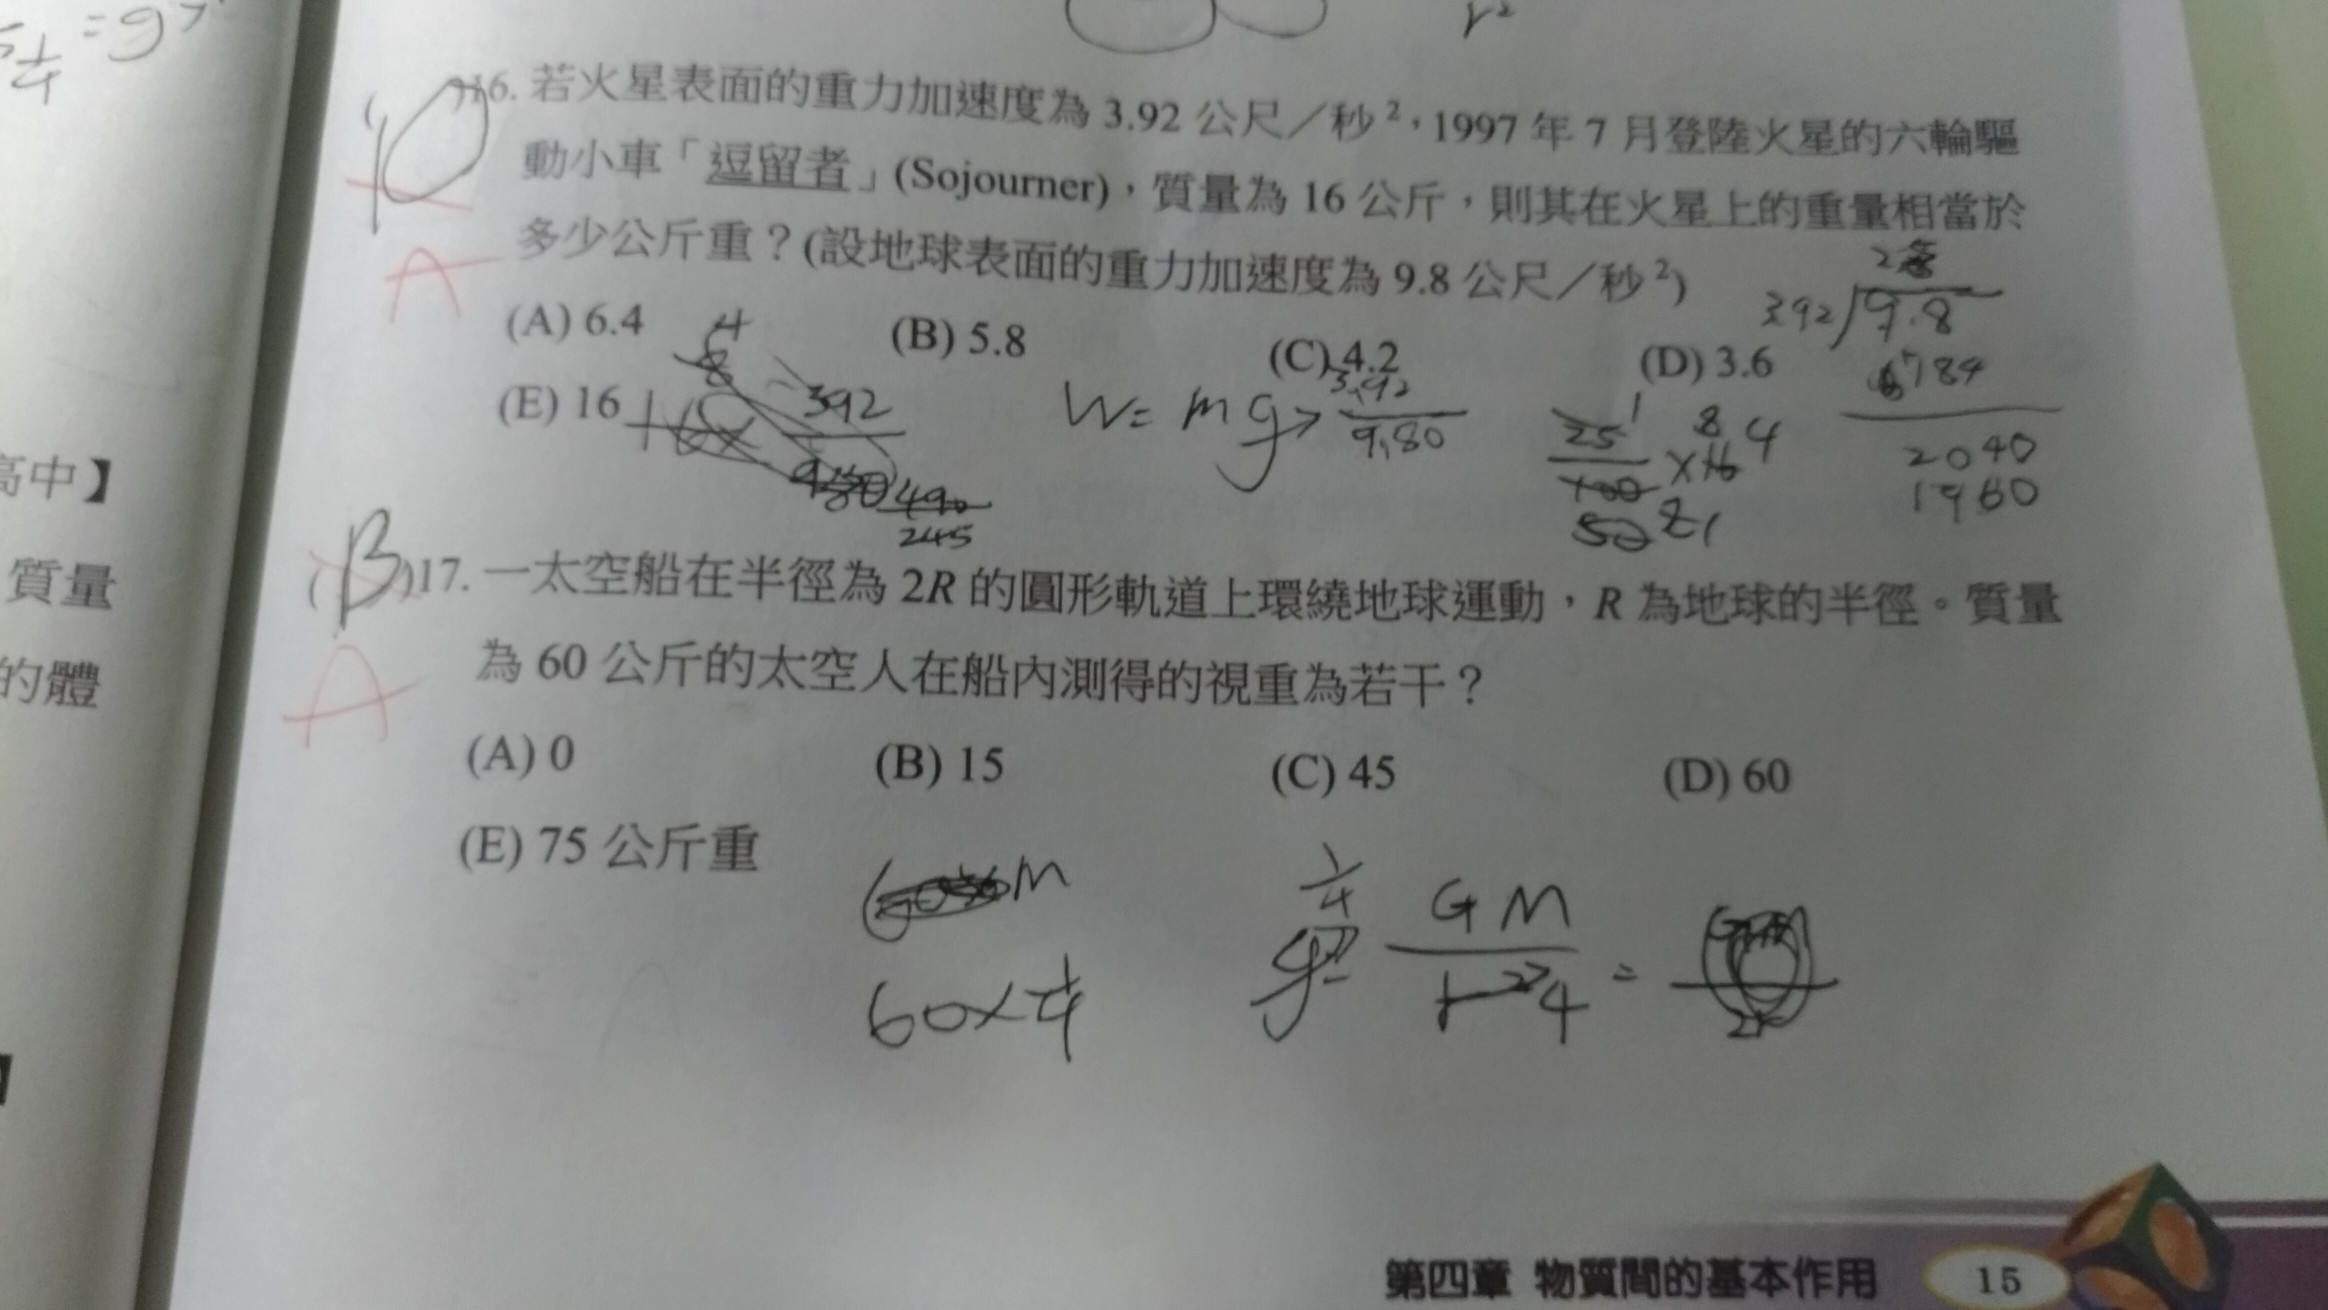 r²
16. 若火星表面的重力加速度為 3.92 公尺／秒²，1997 年 7 月登陸火星的六輪驅
動小車「逗留者」(Sojourner)，質量為 16 公斤，則其在火星上的重量相當於
多少公斤重？(設地球表面的重力加速度為 9.8 公尺／秒²)
A
(A) 6.4
(B) 5.8
(C) 4.2
(D) 3.6
(E) 16
W = mg
3.92
9.80
392
490
245
25
100
×16 4
392
9.8
784
2040
1960
(B)17. 一太空船在半徑為 2R 的圓形軌道上環繞地球運動，R 為地球的半徑。質量
為 60 公斤的太空人在船內測得的視重為若干？
A
(A) 0
(B) 15
(C) 45
(D) 60
(E) 75 公斤重
M
60×1/4
1/4
GM
r² 4
=
高中】
質量
的體
第四章 物質間的基本作用
15